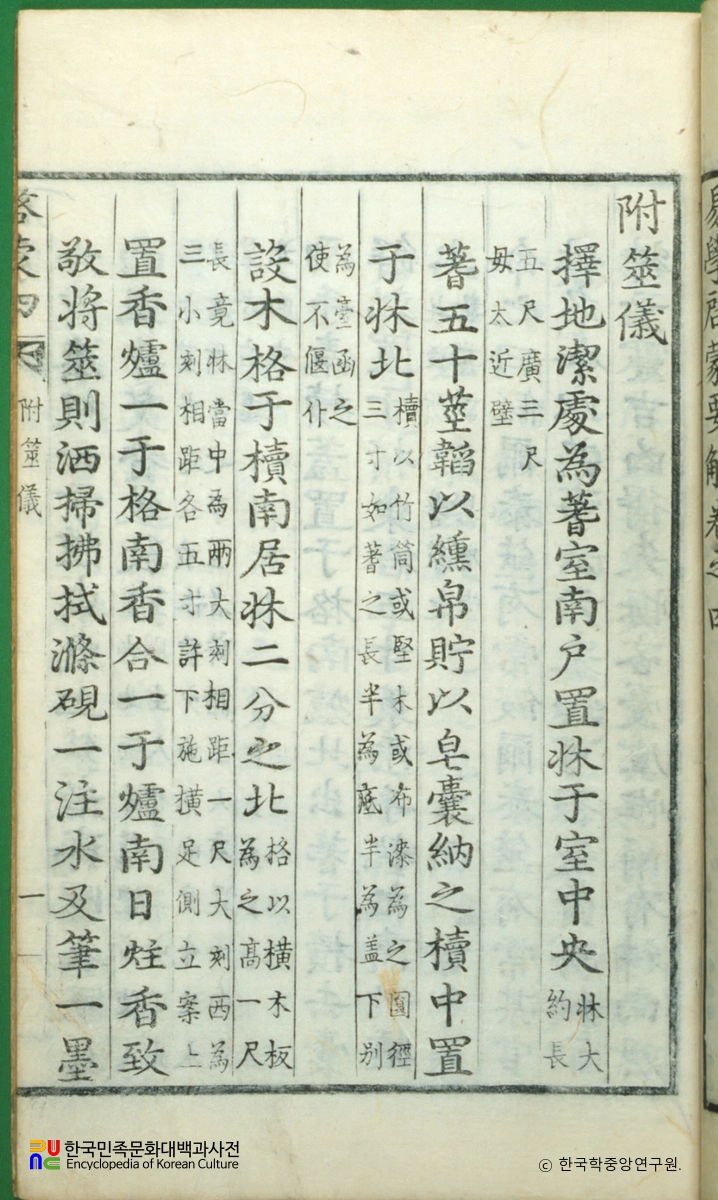 易學啓蒙要解卷之四
附筮儀
擇地潔處為蓍室南户置牀于室中央牀大
約長
五尺廣三尺
毋太近壁
蓍五十莖韜以纁帛貯以皂囊納之櫝中置
于牀北櫝以竹筒或堅木或布漆為之圓徑
三寸如蓍之長半為底半為盖下别
為臺函之
使不偃仆
設木格于櫝南居牀二分之北格以横木板
為之高一尺
長竟牀當中為兩大刻相距一尺大刻西為
三小刻相距各五寸許下施横足側立案上
置香爐一于格南香合一于爐南日炷香致
敬將筮則洒掃拂拭滌硯一注水及筆一墨
啓蒙四 附筮儀 一
한국민족문화대백과사전
Encyclopedia of Korean Culture
© 한국학중앙연구원.